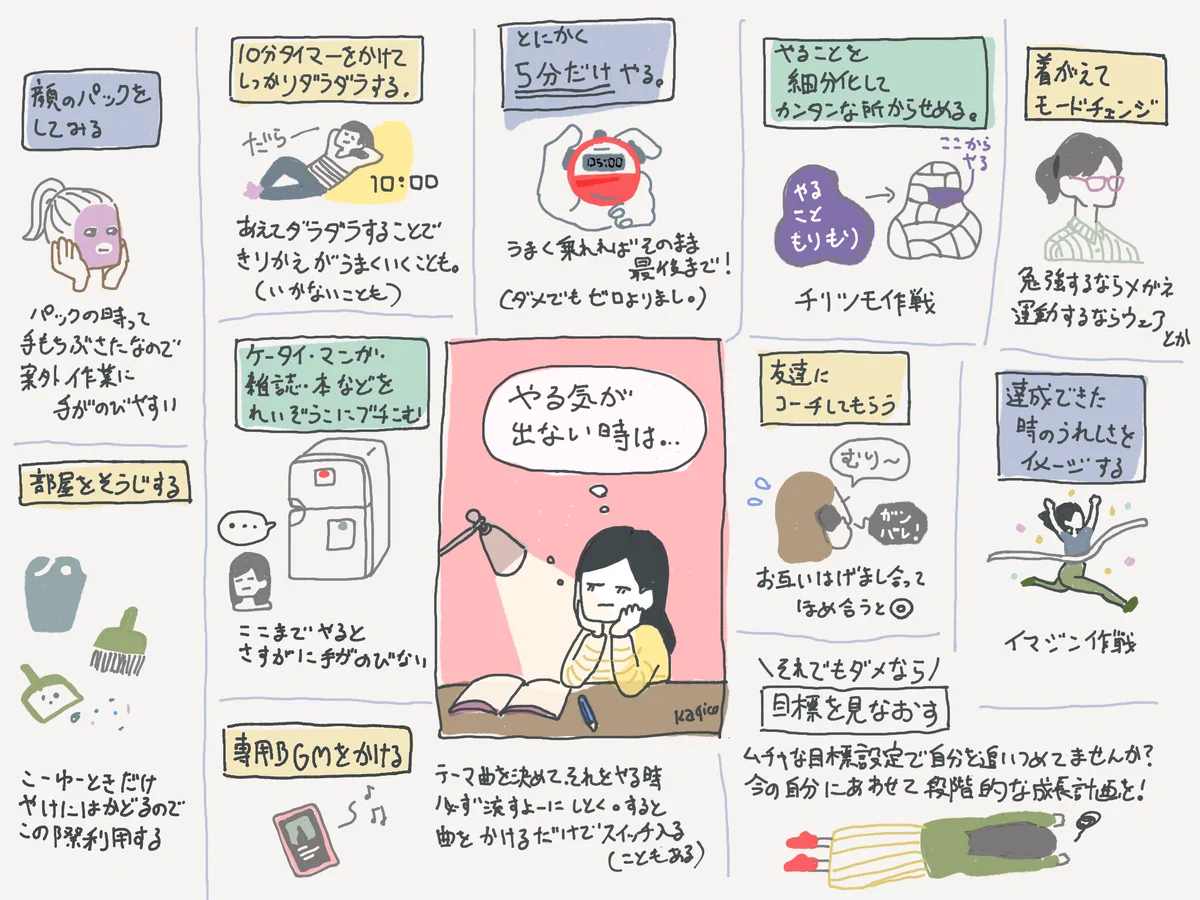 やる気が
出ない時は…
kagico
顔のパックを
してみる
パックの時って
手もちぶさたなので
案外作業に
手がのびやすい
10分タイマーをかけて
しっかりダラダラする。
だらー
10:00
あえてダラダラすることで
きりかえがうまくいくことも。
(いかないことも)
とにかく
5分だけやる。
05:00
うまく乗れればそのまま
最後まで!
(ダメでもゼロよりまし。)
やることを
細分化して
カンタンな所からせめる。
やる
こと
もりもり
ここから
やる
チリツモ作戦
着がえて
モードチェンジ
勉強するならメガネ
運動するならウェア
とか
部屋をそうじする
こーゆーときだけ
やけにはかどるので
この際利用する
ケータイ・マンガ・
雑誌・本などを
れいぞうこにブチこむ
…
ここまでやると
さすがに手がのびない
友達に
コーチしてもらう
むり〜
ガン
バレ!
お互いはげまし合って
ほめ合うと◎
達成できた
時のうれしさを
イメージする
イマジン作戦
専用BGMをかける
テーマ曲を決めて、それをやる時
必ず流すよーにしとく。すると
曲をかけるだけでスイッチ入る
(こともある)
\それでもダメなら/
目標を見なおす
ムチャな目標設定で自分を追いつめてませんか?
今の自分にあわせて段階的な成長計画を!